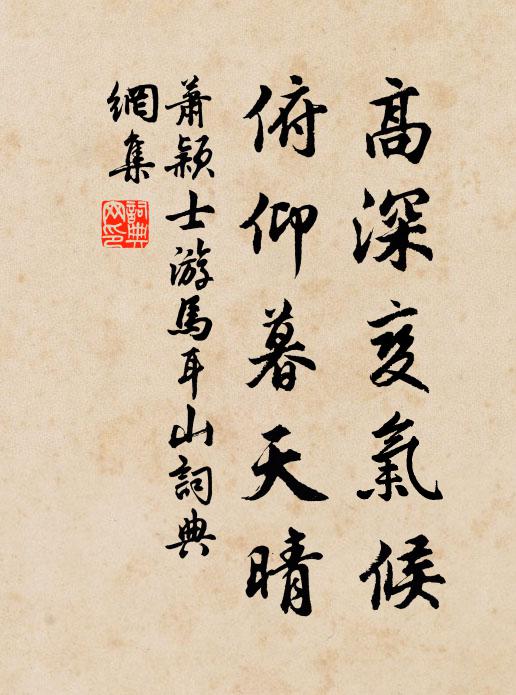 高深变氣候
俯仰暮天晴
萧颖士游馬耳山詞典
網集
詞典
网印